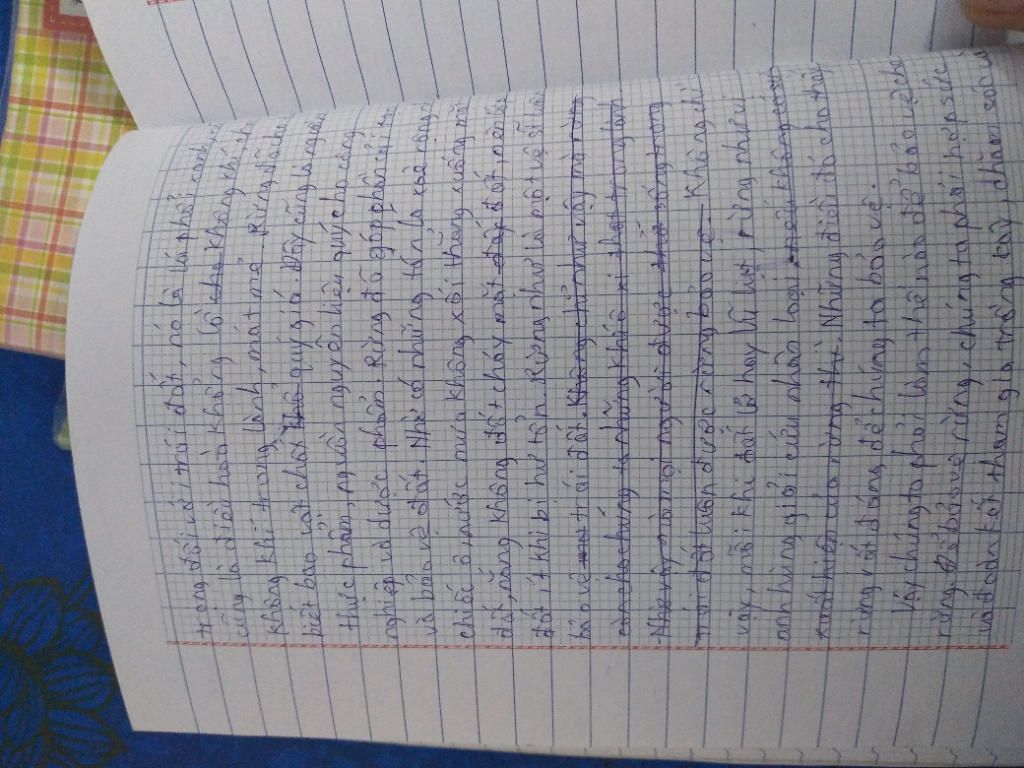 trọng đối với trái đất, nó là lá phổi xanh
cũng là điều hòa khổng lồ cho không khí
không khí trong lành, mát mẻ. Rừng
biết bao vật chất quý giá. Đấy cũng là nguồn
thực phẩm, nguồn nguyên liệu quý cho công
nghiệp và dược phẩm. Rừng đã góp phần
và bảo vệ đất. Nhờ có những tán lá xòe rộng
chiếc ô nước mưa không xối thẳng xuống
đất, nắng không đốt cháy mặt đất nên
đất ít khi bị hư tổn. Rừng như là một vệ sĩ
bảo vệ trái đất. Không chỉ như vậy mà rừng
còn cho chúng ta những khí ô xi
Như vậy,
trái đất luôn được rừng bảo vệ. Không chỉ
vậy, mỗi khi đất lở hay lũ lụt, rừng như vị
anh hùng giải cứu nhân loại, nếu không có
xuất hiện của rừng thì. Những điều đó cho thấy
rừng rất đáng để chúng ta bảo vệ.
Vậy chúng ta phải làm thế nào để bảo vệ
rừng. Để bảo vệ rừng, chúng ta phải hợp sức
và đoàn kết tham gia trồng cây, chăm sóc